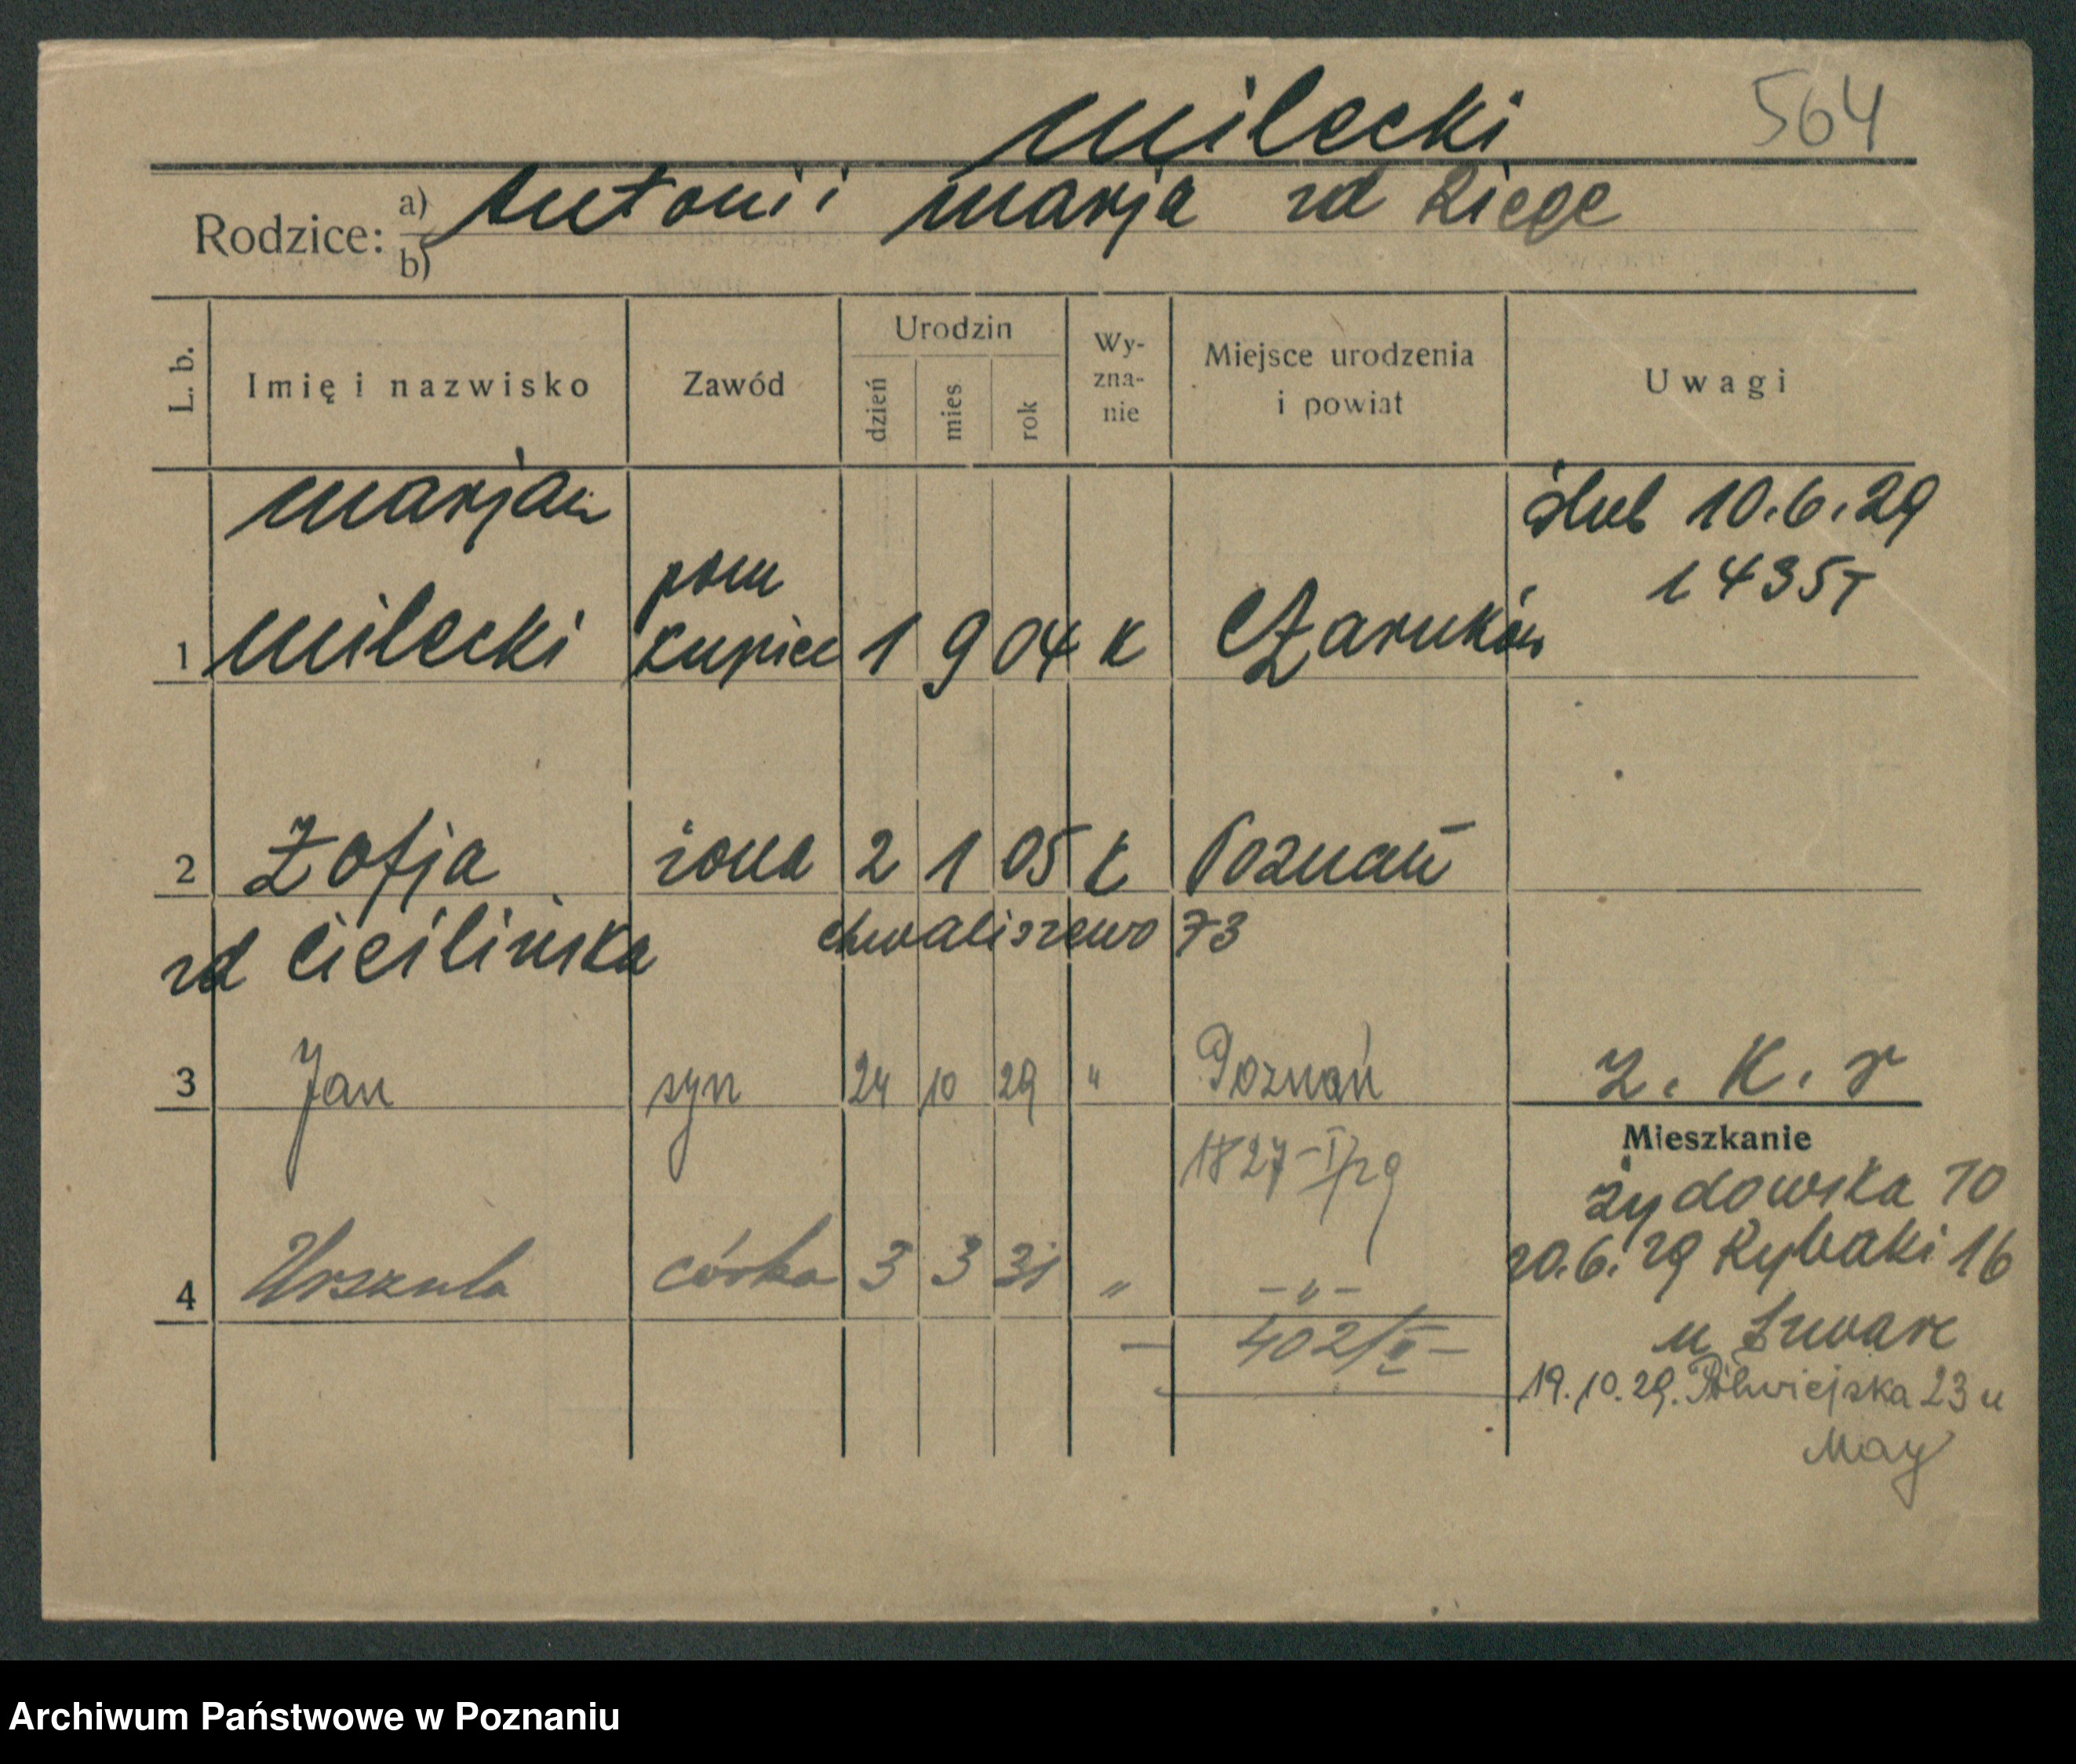 Milecki 564
Rodzice: a) Antoni i Marja zd Ziege
b)
L. b. Imię i nazwisko Zawód Urodzin dzień mies rok Wy-zna-nie Miejsce urodzenia i powiat Uwagi
Marjan ślub 10.6.29
pom 1435
1 Milecki kupiec 1 9 04 k Czarnków
2 Zofja żona 2 1 05 k Poznań
zd Cieślińska Chwaliszewo 73
3 Jan syn 24 10 29 " Poznań Z. K. r
1827-I/29
Mieszkanie
Żydowska 10
4 Urszula córka 3 3 31 " -"-
20.6.29 Rybaki 16
— 402/II —
u Szwarc
19.10.29. Półwiejska 23 u
May
Archiwum Państwowe w Poznaniu